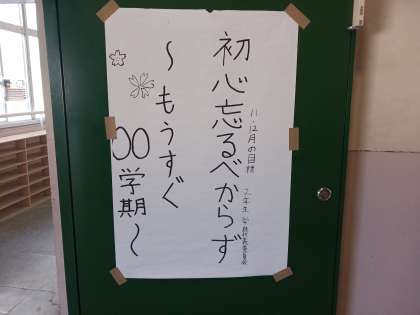 11・12月の目標
2年生 学級代表委員会
初心忘るべからず
～もうすぐ
〇〇学期～